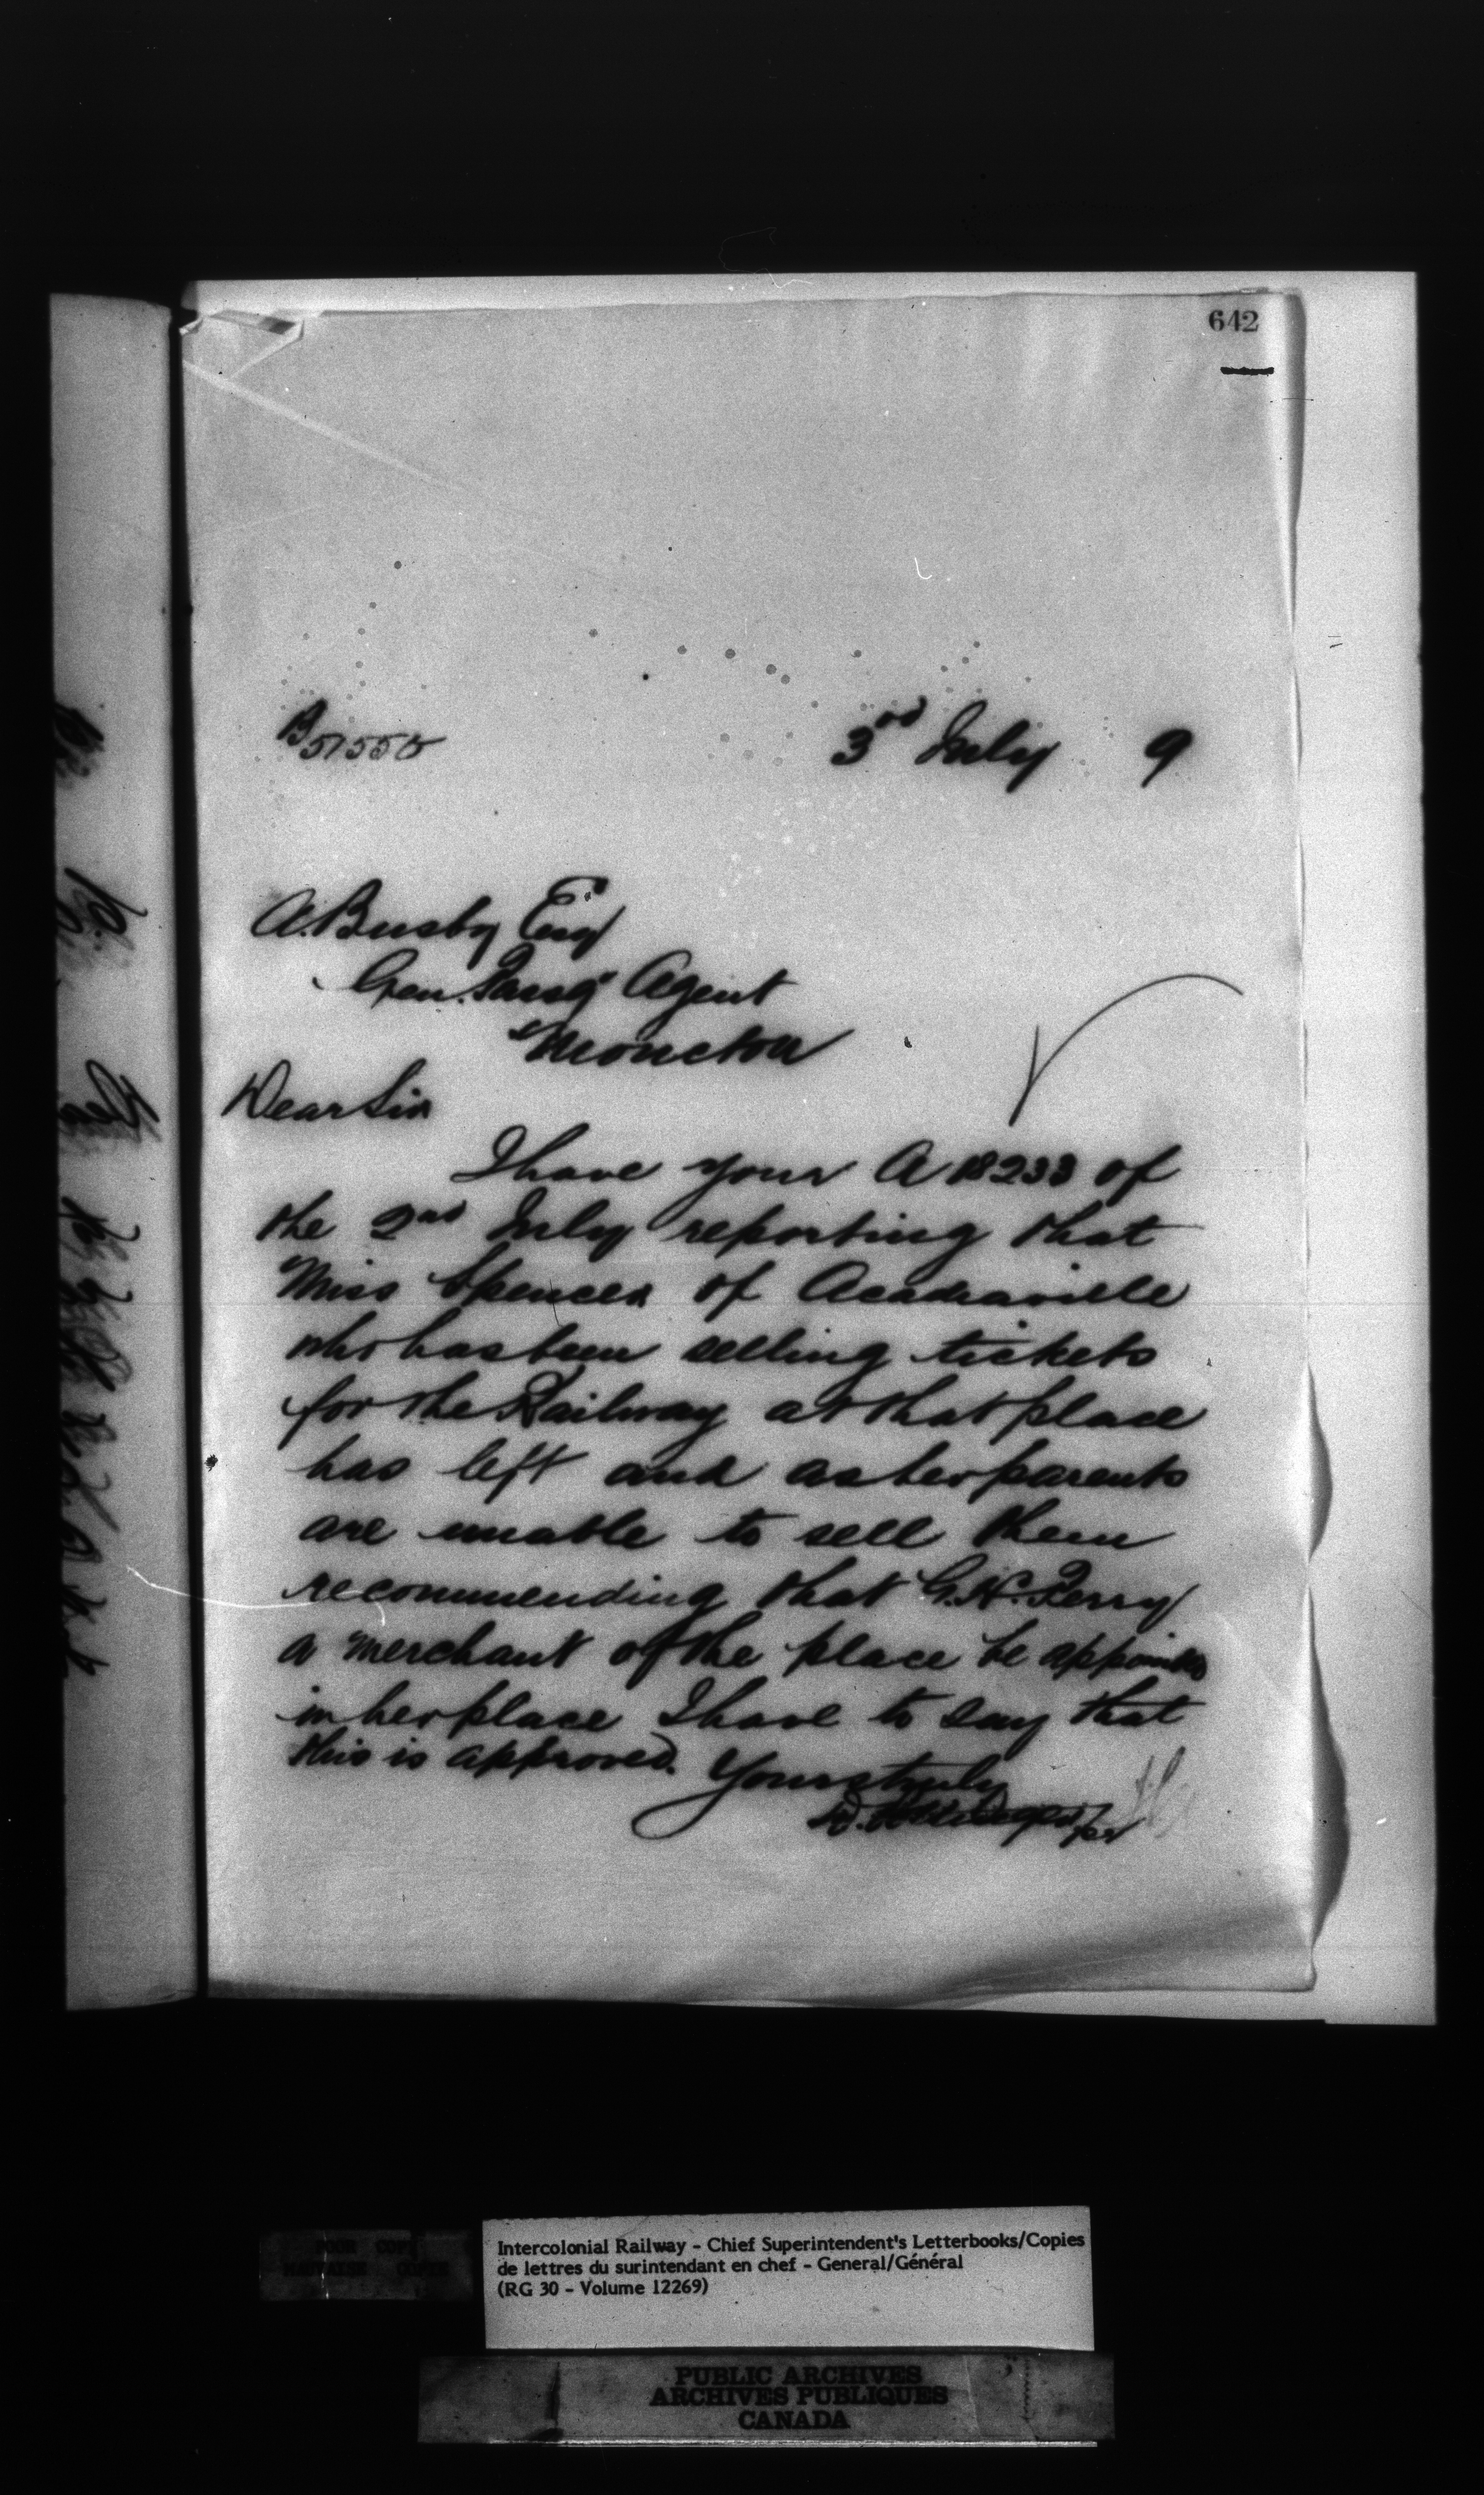 642
B 51550
3rd July 9
A. Busby Esq
Gen. Passg Agent
Moncton
Dear Sir
I have your A 18233 of
the 2nd July reporting that
Miss Spencer of Acadiaville
who has been selling tickets
for the Railway at that place
has left and as her parents
are unable to sell them
recommending that G. H. Perry
a merchant of the place be appointed
in her place I have to say that
this is approved.
Yours truly
D. Pottinger
POOR COPY
MAUVAISE COPIE
Intercolonial Railway - Chief Superintendent's Letterbooks/Copies
de lettres du surintendant en chef - General/Général
(RG 30 - Volume 12269)
PUBLIC ARCHIVES
ARCHIVES PUBLIQUES
CANADA